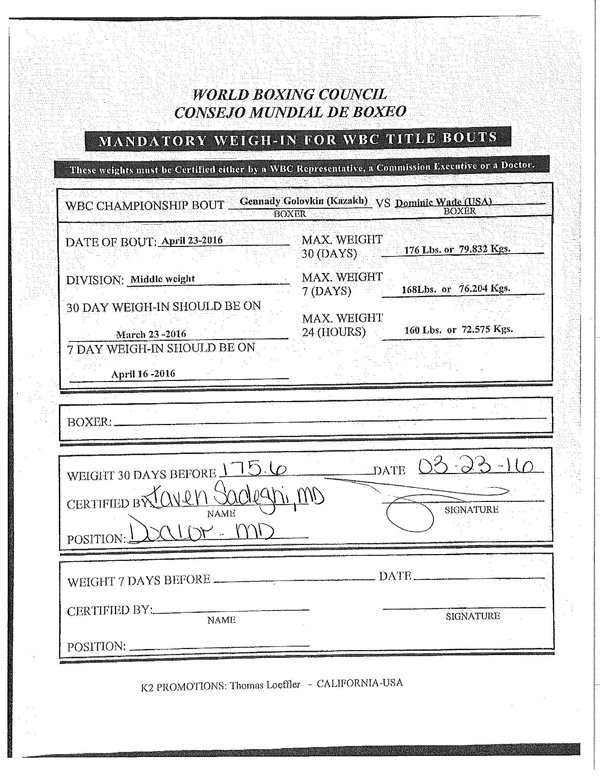 WORLD BOXING COUNCIL
CONSEJO MUNDIAL DE BOXEO
MANDATORY WEIGH-IN FOR WBC TITLE BOUTS
These weights must be Certified either by a WBC Representative, a Commission Executive or a Doctor.
WBC CHAMPIONSHIP BOUT Gennady Golovkin (Kazakh) VS Dominic Wade (USA)
BOXER BOXER
DATE OF BOUT: April 23-2016 MAX. WEIGHT
30 (DAYS) 176 Lbs. or 79.832 Kgs.
DIVISION: Middle weight MAX. WEIGHT
7 (DAYS) 168Lbs. or 76.204 Kgs.
30 DAY WEIGH-IN SHOULD BE ON
MAX. WEIGHT
March 23 -2016 24 (HOURS) 160 Lbs. or 72.575 Kgs.
7 DAY WEIGH-IN SHOULD BE ON
April 16 -2016
BOXER:
WEIGHT 30 DAYS BEFORE 175.6 DATE 03-23-16
CERTIFIED BY Javen Sadeghi, MD
NAME SIGNATURE
POSITION: Doctor - MD
WEIGHT 7 DAYS BEFORE DATE
CERTIFIED BY:
NAME SIGNATURE
POSITION:
K2 PROMOTIONS: Thomas Loeffler - CALIFORNIA-USA